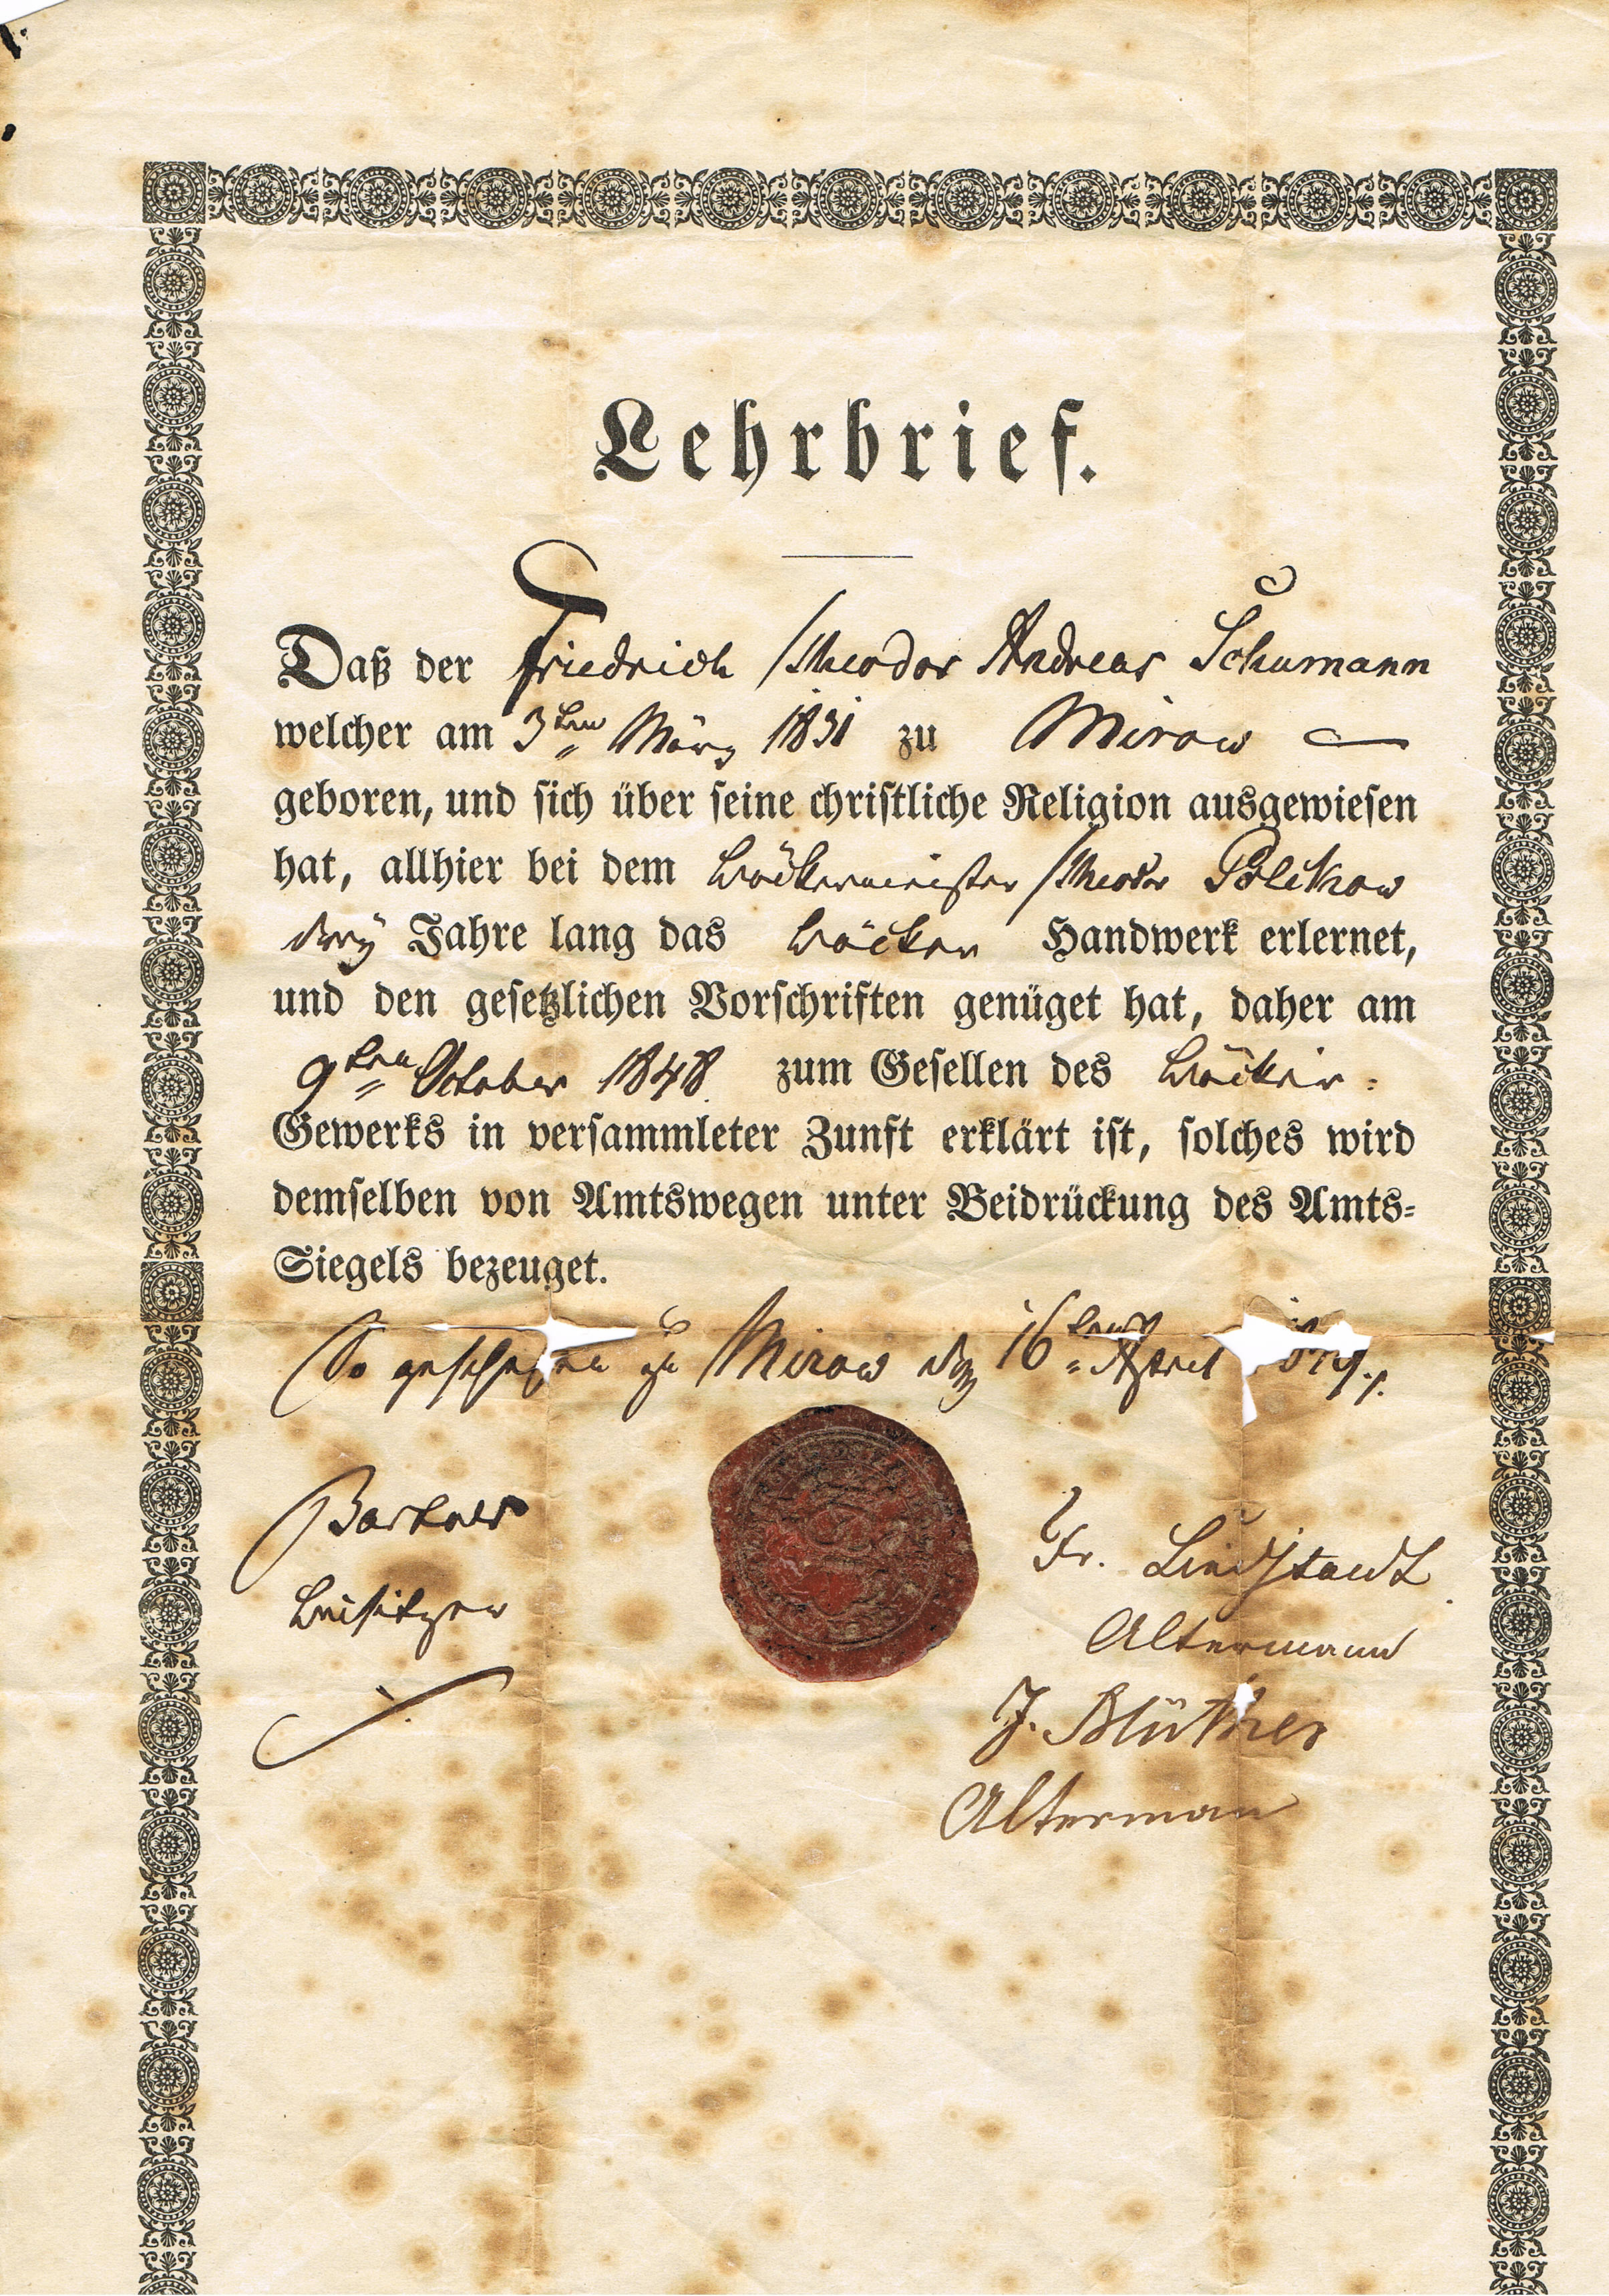 Lehrbrief.
Daß der Friedrich Theodor Andreas Schumann
welcher am 3ten März 1831 zu Mirow
geboren, und sich über seine christliche Religion ausgewiesen
hat, allhier bei dem Bäckermeister Theodor Polckow
drey Jahre lang das Bäcker Handwerk erlernet,
und den gesetzlichen Vorschriften genüget hat, daher am
9ten October 1848 zum Gesellen des Bäcker-
Gewerks in versammleter Zunft erklärt ist, solches wird
demselben von Amtswegen unter Beidrückung des Amts-
Siegels bezeuget.
So geschehen zu Mirow den 16ten April
Beisitzer
Fr. Lindstaedt
Altermann
J. Blüther
Alterman